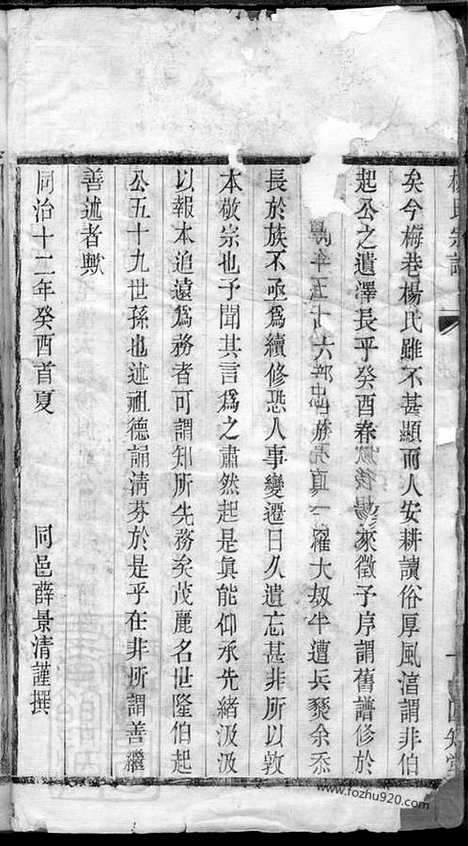 楊氏宗譜
矣今梅巷楊氏雖不甚顯而人安耕讀俗厚風湻謂非伯
起公之遺澤長乎癸酉春 後楊 來徵予序謂舊譜修於
年五十六 族 真一罹大刼半遭兵燹余忝
長於族不亟爲續修恐人事變遷日久遺忘甚非所以敦
本敬宗也予聞其言爲之肅然起是眞能仰承先緒汲汲
以報本追遠爲務者可謂知所先務矣茂麗名世隆伯起
公五十九世孫也述祖德誦淸芬於是乎在非所謂善繼
善述者歟
同治十二年癸酉首夏　同邑薛景清謹撰
www.fozhu920.com